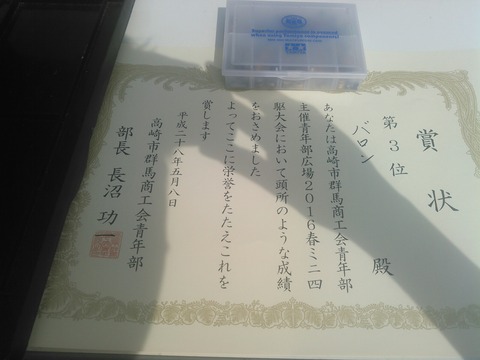 賞状
第3位
バロン 殿
あなたは高崎市群馬商工会青年部
主催青年部広場2016春ミニ四
駆大会において頭所のような成績
をおさめました
よってここに栄誉をたたえこれを
賞します
平成二十八年五月八日
高崎市群馬商工会青年部
部長 長沼 功一
TAMIYA